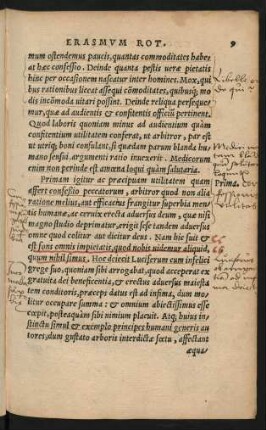 ERASMVM ROT. 9
mum ostendemus paucis, quantas commoditates habet
at hæc confessio. Deinde quanta pestis ueræ pietatis
hinc per occasionem nascatur inter homines. Mox, qui
bus rationibus liceat assequi cōmoditates, quibusq; mo
dis incōmoda uitari possint. Deinde reliqua perseque
mur, quæ ad audientis & confitentis officiū pertinent.
Quod laboris quoniam minus ad audientium quàm
confitentium utilitatem conferat, ut arbitror, par est
ut uteriq; boni consulant, si quædam parum blanda hu
mano sensui, argumenti ratio inuexerit. Medicorum
enim non perinde est amœna loqui quàm salutaria.
Primam igitur ac præcipuam utilitatem quam
affert confessio peccatorum, arbitror quod non alia
ratione melius, aut efficacius frangitur superbia men
tis humanæ, ac ceruix erecta aduersus deum, quæ nisi
magno studio deprimatur, erigit sese tandem aduersus
omne quod colitur aut dicitur deus. Nam hic fuit & 
est fons omnis impietatis, quod nobis uidemur aliquid,
quum nihil simus. Hoc deiecit Luciferum cum infelici
grege suo, quoniam sibi arrogabat, quod acceperat ex
gratuita dei beneficentia, & erectus aduersus maiesta
tem conditoris, præceps datus est ad infima, dum mo
litur occupare summa: & omnium abiectissimus esse
cœpit, posteaquàm sibi nimium placuit. Atq; huius in
stinctu simul & exemplo principes humani generis au
tores, dum gustato arboris interdictæ fœtu, affectant
æqua/
Prima.